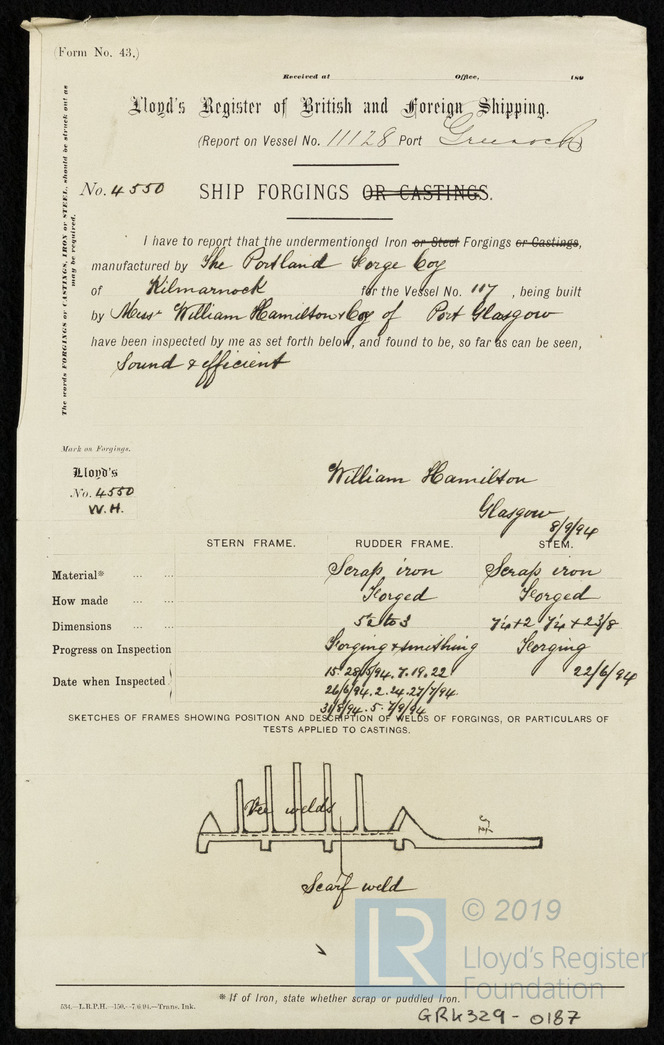 (Form No. 43.)
Received at Office, 189
Lloyd's Register of British and Foreign Shipping.
(Report on Vessel No. 11128 Port Greenock)
No. 4550 SHIP FORGINGS OR CASTINGS.
The words FORGINGS or CASTINGS, IRON or STEEL, should be struck out as
may be required.
I have to report that the undermentioned Iron or Steel Forgings or Castings,
manufactured by The Portland Forge Coy
of Kilmarnock for the Vessel No. 117, being built
by Messrs William Hamilton & Coy of Port Glasgow
have been inspected by me as set forth below, and found to be, so far as can be seen,
Sound & efficient
Mark on Forgings.
Lloyd's
No. 4550
W.H.
William Hamilton
Glasgow
8/9/94
STERN FRAME. RUDDER FRAME. STEM.
Material* ... ... Scrap iron Scrap iron
How made ... ... Forged Forged
Dimensions ... ... to 3
Progress on Inspection Forging & smithing Forging
Date when Inspected 15. 28/5/94. 7. 19. 22 22/6/94
26/6/94. 2. 24. 27/7/94
31/8/94. 5. 7/9/94
SKETCHES OF FRAMES SHOWING POSITION AND DESCRIPTION OF WELDS OF FORGINGS, OR PARTICULARS OF
TESTS APPLIED TO CASTINGS.
Vee welds
Scarf weld
LR © 2019
Lloyd's Register
Foundation
* If of Iron, state whether scrap or puddled Iron.
534.—L.R.P.H.—150.—7/6/94.—Trans. Ink.
GRK329-0187